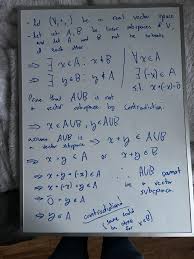 - let (V,+,·) be a real vector space
- let A, B be linear subspaces of V,
and let A and B not be subsets
of each other
⇒ ∃ x∈A : x∉B
⇒ ∃ y∈B : y∉A
∀x∈A
∃(-x)∈A
s.t. x+(-x)=0
Prove that A∪B is not
a vector subspace by contradiction:
⇒ x∈A∪B, y∈A∪B
assume A∪B is
a vector subspace ⇒ x+y ∈ A∪B
⇒ x+y∈A or x+y∈B
⇒ x+y+(-x)∈A
⇒ x+(-x)+y∈A
⇒ 0+y∈A
⇒ y∈A
∴ A∪B cannot
be a vector
subspace
contradiction!
(same could
be done for
x∈B)